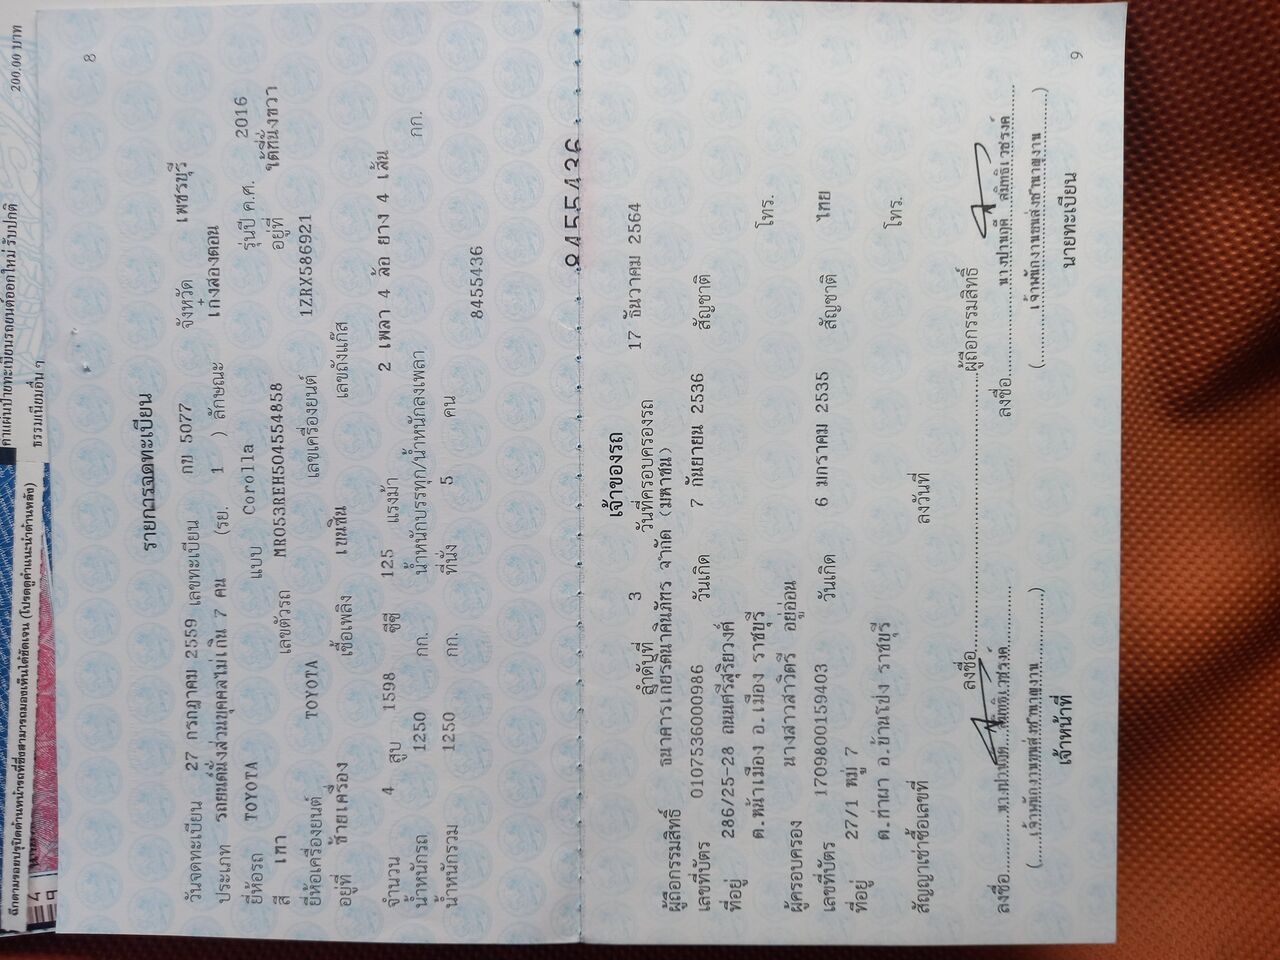 ฉีกตามรอยปรุปิดด้านหน้ารถที่ซึ่งสามารถมองเห็นได้ชัดเจน (โปรดดูคำแนะนำด้านหลัง)
ค่าแผ่นป้ายทะเบียนรถยนต์ออกใหม่ รับปกติ 200.00 บาท
ธรรมเนียมอื่น ๆ
8
รายการจดทะเบียน
วันจดทะเบียน 27 กรกฎาคม 2559 เลขทะเบียน กข 5077 จังหวัด เพชรบุรี
ประเภท รถยนต์นั่งส่วนบุคคลไม่เกิน 7 คน (รย. 1 ) ลักษณะ เก๋งสองตอน
ยี่ห้อรถ TOYOTA แบบ Corolla รุ่นปี ค.ศ. 2016
สี เทา เลขตัวรถ MR053REH504554858 อยู่ที่ ใต้ที่นั่งขวา
ยี่ห้อเครื่องยนต์ TOYOTA เลขเครื่องยนต์ 1ZRX586921
อยู่ที่ ซ้ายเครื่อง เชื้อเพลิง เบนซิน เลขถังแก๊ส
จำนวน 4 สูบ 1598 ซีซี 125 แรงม้า 2 เพลา 4 ล้อ ยาง 4 เส้น
น้ำหนักรถ 1250 กก. น้ำหนักบรรทุก/น้ำหนักลงเพลา กก.
น้ำหนักรวม 1250 กก. ที่นั่ง 5 คน
8455436
8455436
เจ้าของรถ
ลำดับที่ 3 วันที่ครอบครองรถ 17 ธันวาคม 2564
ผู้ถือกรรมสิทธิ์ ธนาคารเกียรตินาคินภัทร จำกัด (มหาชน)
เลขที่บัตร 0107536000986 วันเกิด 7 กันยายน 2536 สัญชาติ
ที่อยู่ 286/25-28 ถนนศรีสุริยวงศ์
ต.หน้าเมือง อ.เมือง ราชบุรี โทร.
ผู้ครอบครอง นางสาวสาวิตรี อยู่อ่อน
เลขที่บัตร 1709800159403 วันเกิด 6 มกราคม 2535 สัญชาติ ไทย
ที่อยู่ 27/1 หมู่ 7
ต.ท่าผา อ.บ้านโป่ง ราชบุรี โทร.
สัญญาเช่าซื้อเลขที่ ลงวันที่
ลงชื่อ ผู้ถือกรรมสิทธิ์
ลงชื่อ ลงชื่อ
(เจ้าพนักงานขนส่งชำนาญงาน) (เจ้าพนักงานขนส่งชำนาญงาน)
เจ้าหน้าที่ นายทะเบียน
9